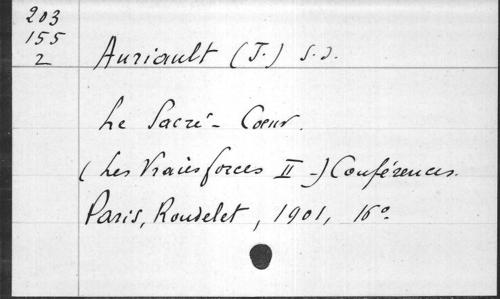 203
155
2
Auriault (J.) s.j.
Le Sacré-Coeur.
(Les Vraies forces II-) Conférences.
Paris, Roudelet, 1901, 16°